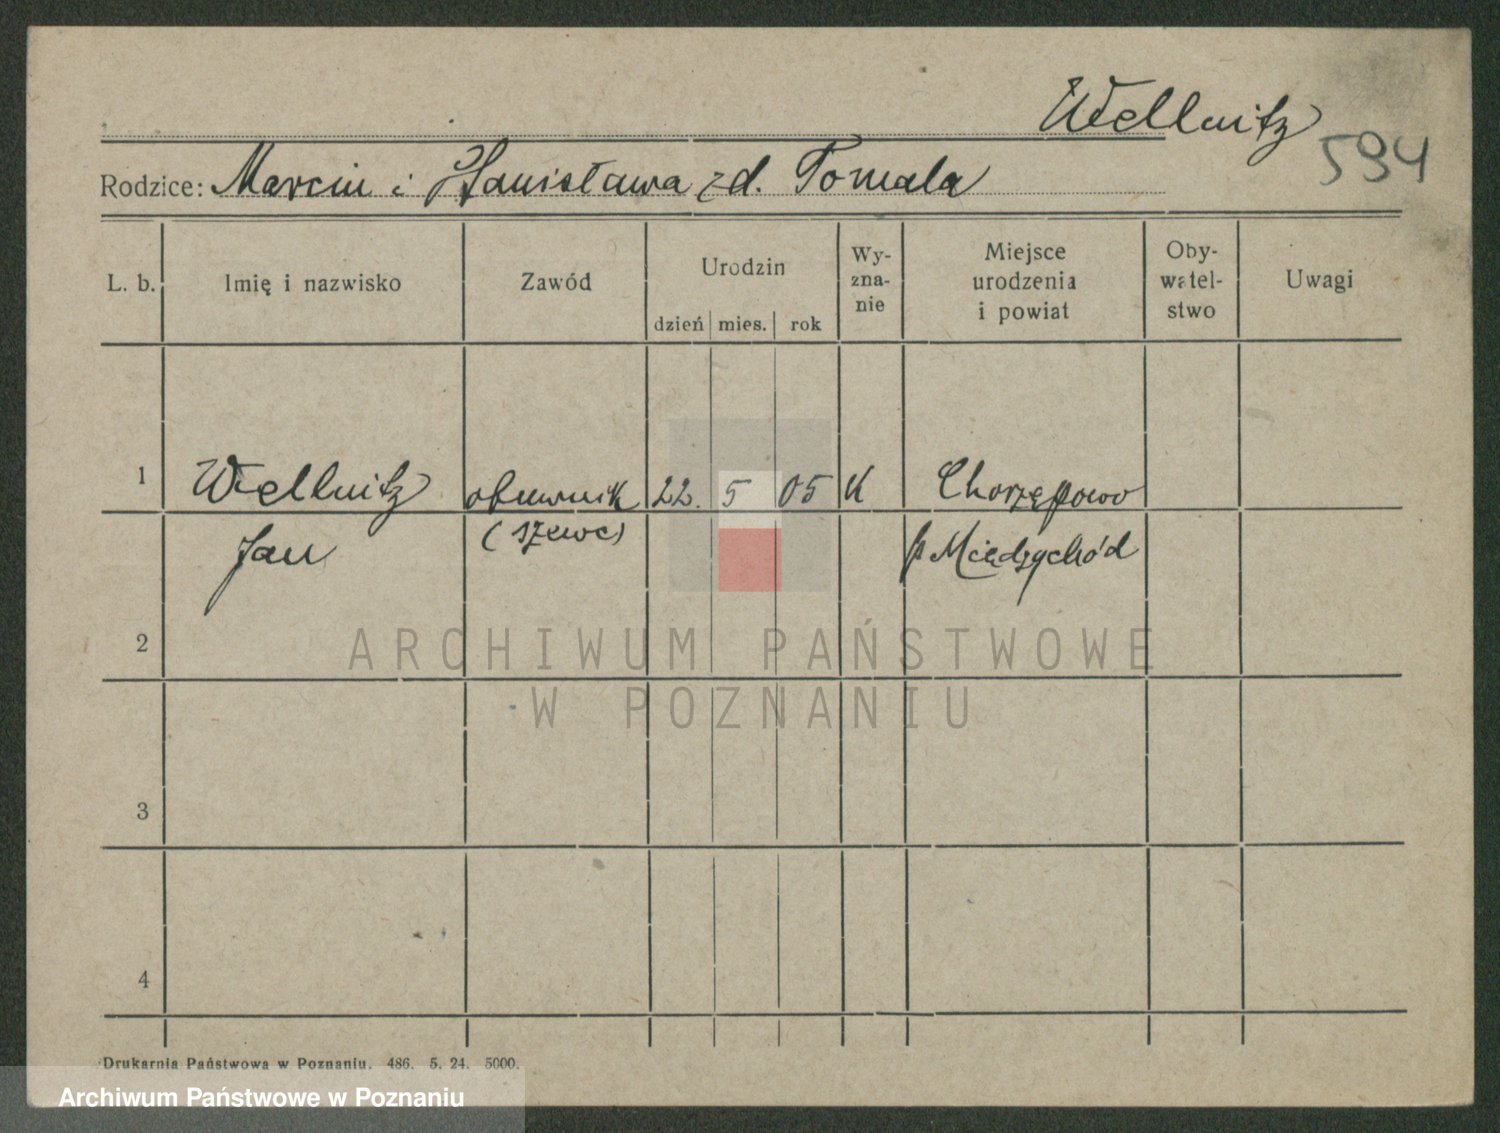 Wellnitz
594
Rodzice: Marcin i Stanisława zd. Tomala
L. b. Imię i nazwisko Zawód Urodzin dzień mies. rok Wy-zna-nie Miejsce urodzenia i powiat Oby-watel-stwo Uwagi
1 Wellnitz obuwnik 22. 5 05 K Chorzępowo
Jan (szewc) p Międzychód
2
ARCHIWUM PAŃSTWOWE
W POZNANIU
3
4
Drukarnia Państwowa w Poznaniu. 486. 5. 24. 5000.
Archiwum Państwowe w Poznaniu